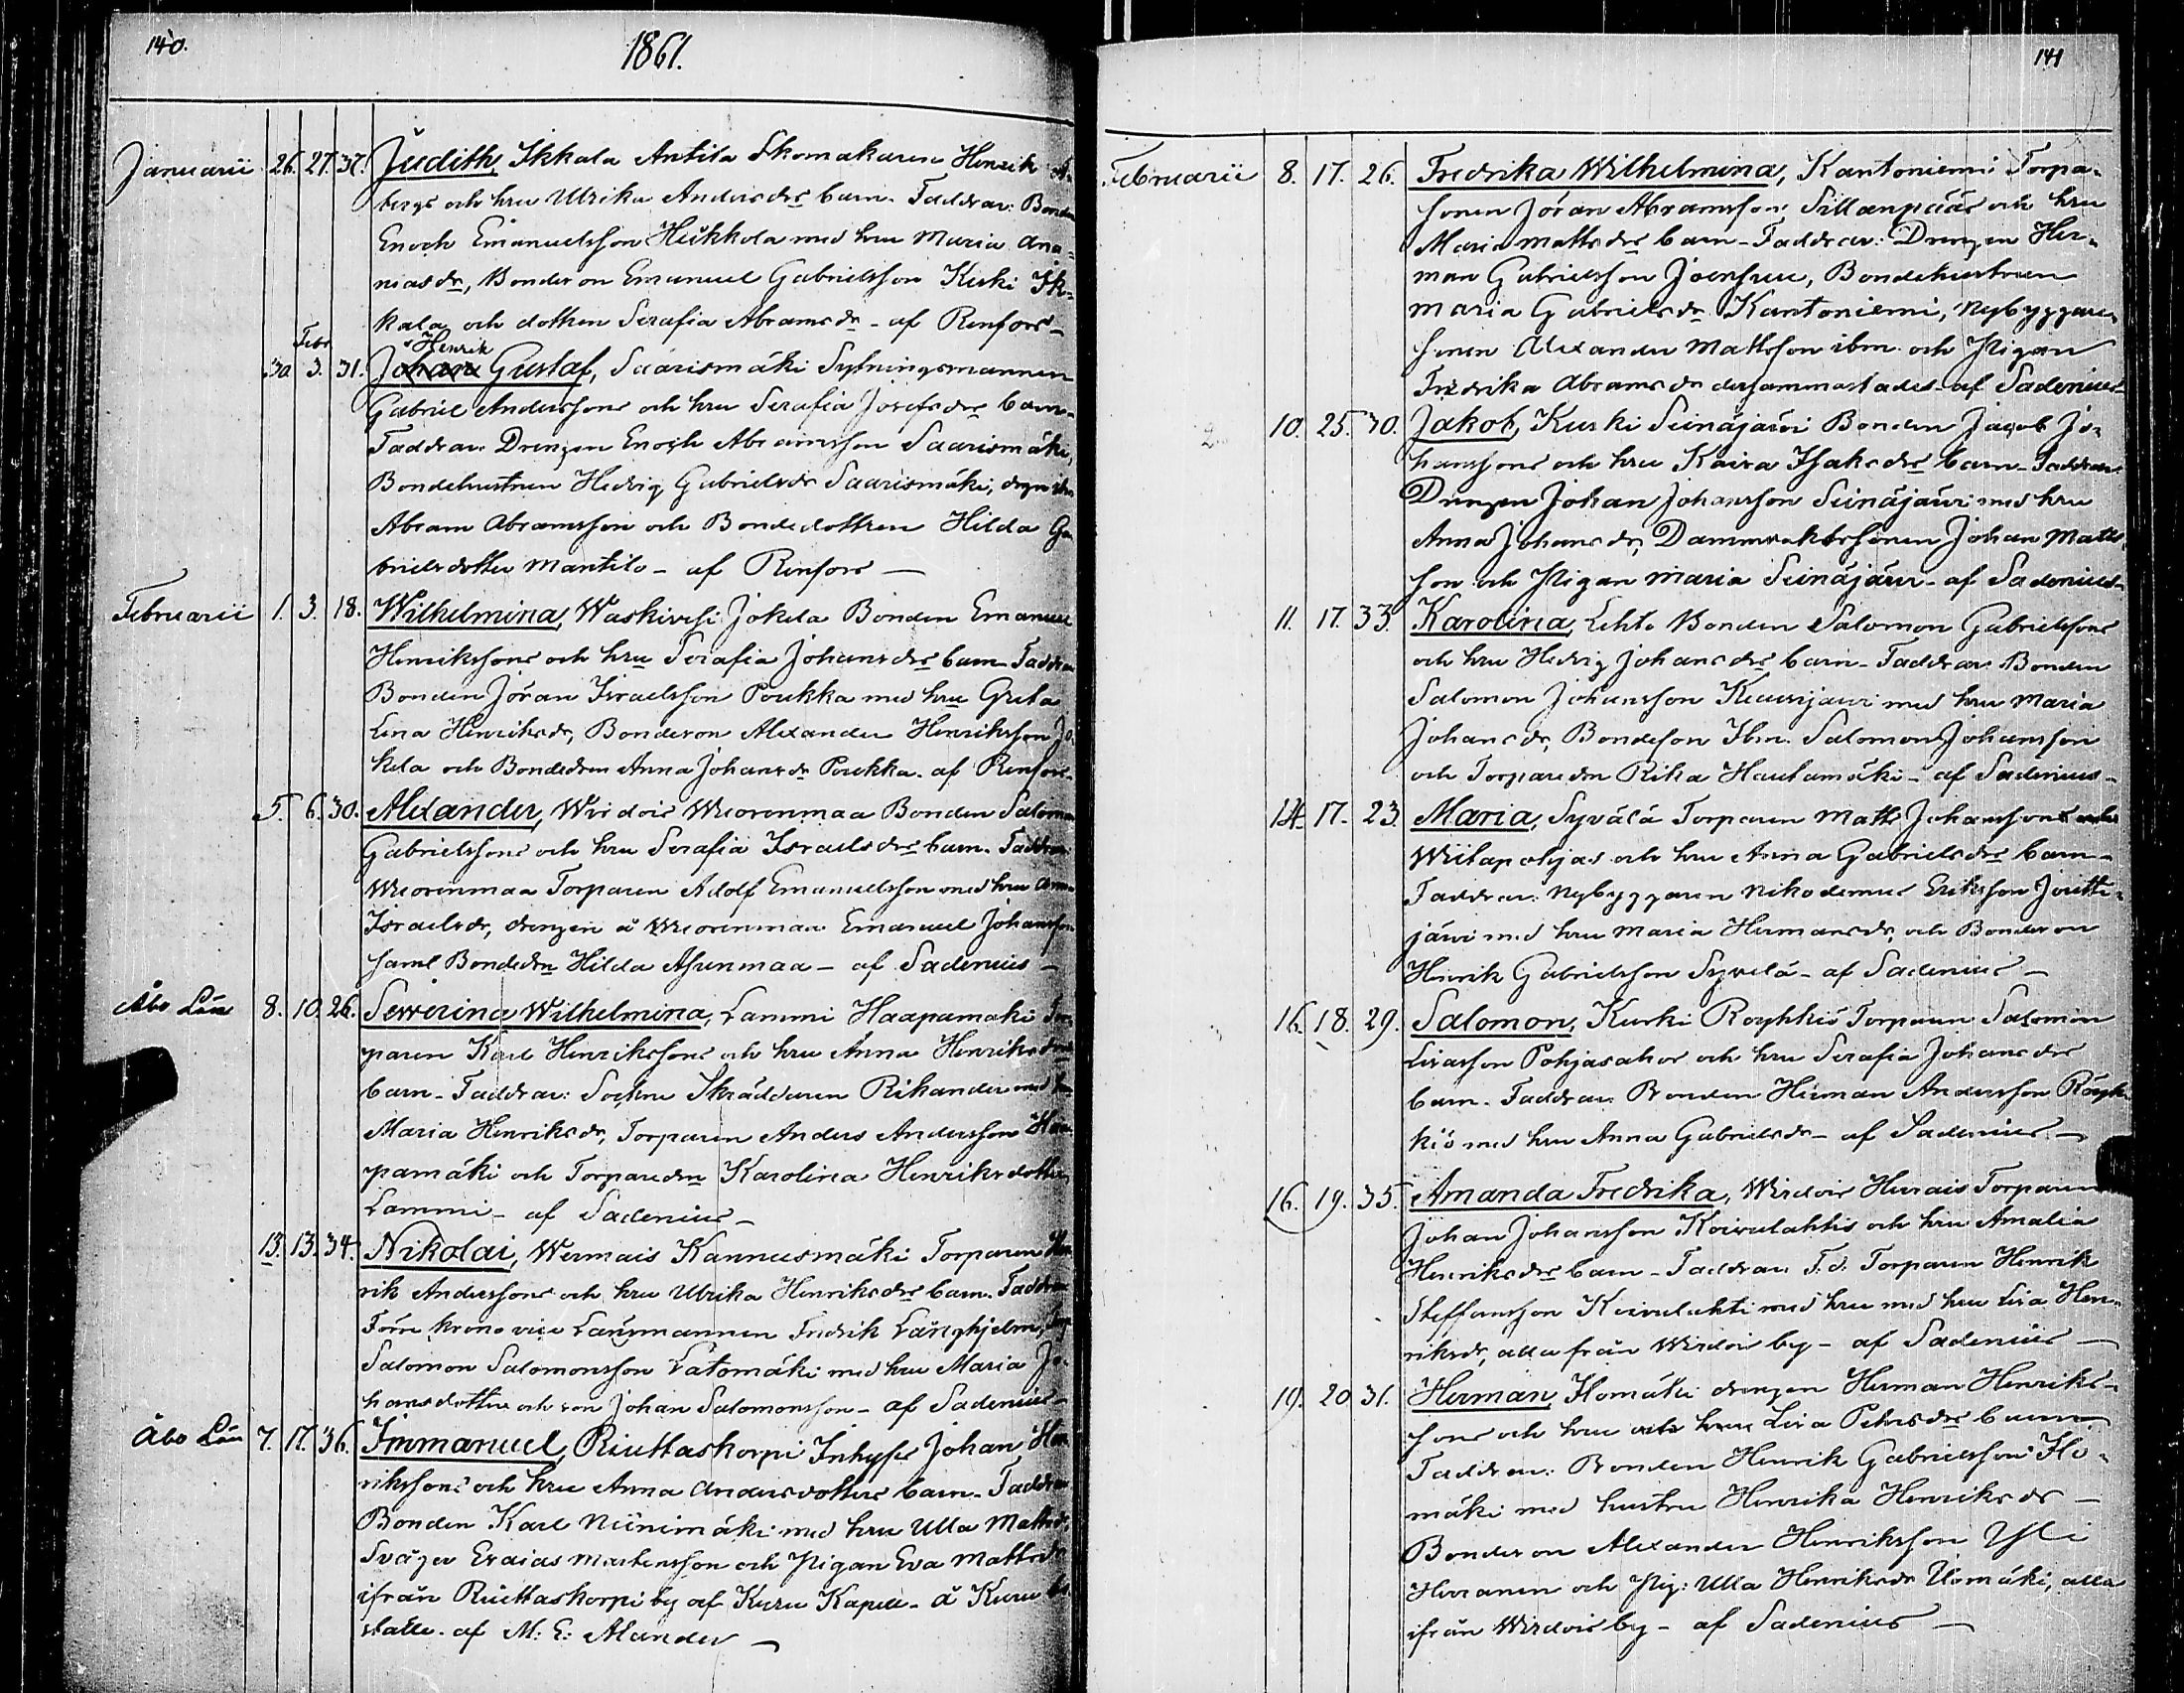 140.
1861.
Januarii 26. 27. 37. Judith, Ikkala Antila Skomakaren Henrik
bergs och hru Ulrika Andersdrs barn. Faddrar: Bonden
Enoch Emanuelsson Heikkola med hru Maria Ana=
niasdr, Bondeson Emanuel Gabrielsson Kurki Ik=
kala och dottren Serafia Abramsdr - af Renfors -
Febr Henrik
30. 3. 31. Johan Gustaf, Saarismäki Sytningsmannen
Gabriel Anderssons och hru Serafia Josefsdrs barn.
Faddrar. Drengen Enoch Abramsson Saarismäki,
Bondehustrun Hedvig Gabrielsdr Saarismäki,
Abram Abramsson och Bondedottren Hilda Ga
brielsdotter Mantila - af Renfors -
Februarii 1. 3. 18. Wilhelmina, Waskivesi Jokela Bonden Emanuel
Henrikssons och hru Serafia Johansdrs barn Faddrar
Bonden Jöran Israelsson Poukka med hru Greta
Lena Henriksdr, Bondeson Alexander Henriksson Jo
kela och Bondedren Anna Johansdr Poukka. af Renfors.
5. 6. 30. Alexander, Wirdois Wuorenmaa Bonden Salomon
Gabrielssons och hru Serafia Israelsdrs barn. Faddrar
Wuorenmaa Torparen Adolf Emanuelsson med hru Anna
Israelsdr, drengen å Wuorenmaa Emanuel Johansson
samt Bondedrn Hilda Asunmaa - af Sadenius -
Åbo Län 8. 10. 26. Severina Wilhelmina, Lammi Haapamaki Tor
paren Karl Henrikssons och hru Anna Henriksdrs
barn. Faddrar: Sockne Skräddaren Rikander med hru
Maria Henriksdr, Torparen Anders Andersson Haa
pamäki och Torparedrn Karolina Henriksdotter
Lammi - af Sadenius -
13. 13. 34. Nikolai, Wermais Kannusmäki Torparen Hen
rik Anderssons och hru Ulrika Henriksdrs barn. Faddrar
Förre krono vice Länsmannen Fredrik Långhjelm,
Salomon Salomonsson Latomäki med hru Maria Jo
hansdotter och son Johan Salomonsson - af Sadenius -
Åbo Län 7. 17. 36. Immanuel, Riuttaskorpi Inhyses Johan Hen
rikssons och hru Anna Andersdotters barn. Faddrar
Bonden Karl Niinimäki med hru Ulla Mattsdr
Svåger Esaias Mårtensson och Pigan Eva Mattsdr
ifrån Riuttaskorpi by af Kuru Kapell - å Kuru
ställe. af M: E: Alander -
141
Februarii 8. 17. 26. Fredrika Wilhelmina, Kantoniemi Torpa=
sonen Jöran Abramsson Sillanpääs och hru
Maria Mattsdrs barn - Faddrar: Drengen Her=
man Gabrielsson Joensuu, Bondehustrun
Maria Gabrielsdr Kantoniemi, Nybyggare
sonen Alexander Mattsson ibm. och Pigan
Fredrika Abramsdr dersammastädes - af Sadenius -
10. 25. 30. Jakob, Kurki Seinäjärvi Bonden Jacob Jo=
hanssons och hru Kaisa Isaksdrs barn - Faddrar
Drengen Johan Johansson Seinäjärvi med hru
Anna Johansdr, Dammvaktssonen Johan Matts
son och Pigan Maria Seinäjärvi - af Sadenius -
11. 17. 33. Karolina, Lehto Bonden Salomon Gabrielssons
och hru Hedvig Johansdrs barn - Faddrar Bonden
Salomon Johansson Keurijärvi med hru Maria
Johansdr, Bondeson Ibm. Salomon Johansson
och Torparedrn Rika Hautamäki - af Sadenius -
14. 17. 23. Maria, Syvälä Torparen Matts Johanssons
Wiitapohjas och hru Anna Gabrielsdrs barn -
Faddrar: Nybyggaren Nikodemus Eriksson Joutti=
järvi med hru Maria Hermansdr, och Bondeson
Henrik Gabrielsson Syvelä - af Sadenius -
16. 18. 29. Salomon, Kurki Roykkiö Torparen Salomon
Esaisson Pohjasahos och hru Serafia Johansdrs
barn. Faddrar Bonden Herman Andersson Röyk
kiö med hru Anna Gabrielsdr - af Sadenius -
16. 19. 35. Amanda Fredrika, Wirdois Herrais Torparen
Johan Johansson Koivulahtis och hru Amalia
Henriksdrs barn - Faddrar F.d. Torparen Henrik
Steffansson Koivulahti med hru med hru Lisa Hen=
riksdr, alla från Wirdois by - af Sadenius -
19. 20 31. Herman, Ilomäki drengen Herman Henriks=
sons och hru och hru Lisa Petersdrs barn
Faddrar: Bonden Henrik Gabrielsson Ilo=
mäki med hustru Henrika Henriksdr -
Bondeson Alexander Henriksson Yli
Herranen och Pig: Ulla Henriksdr Ilomäki, alla
ifrån Wirdois by - af Sadenius -